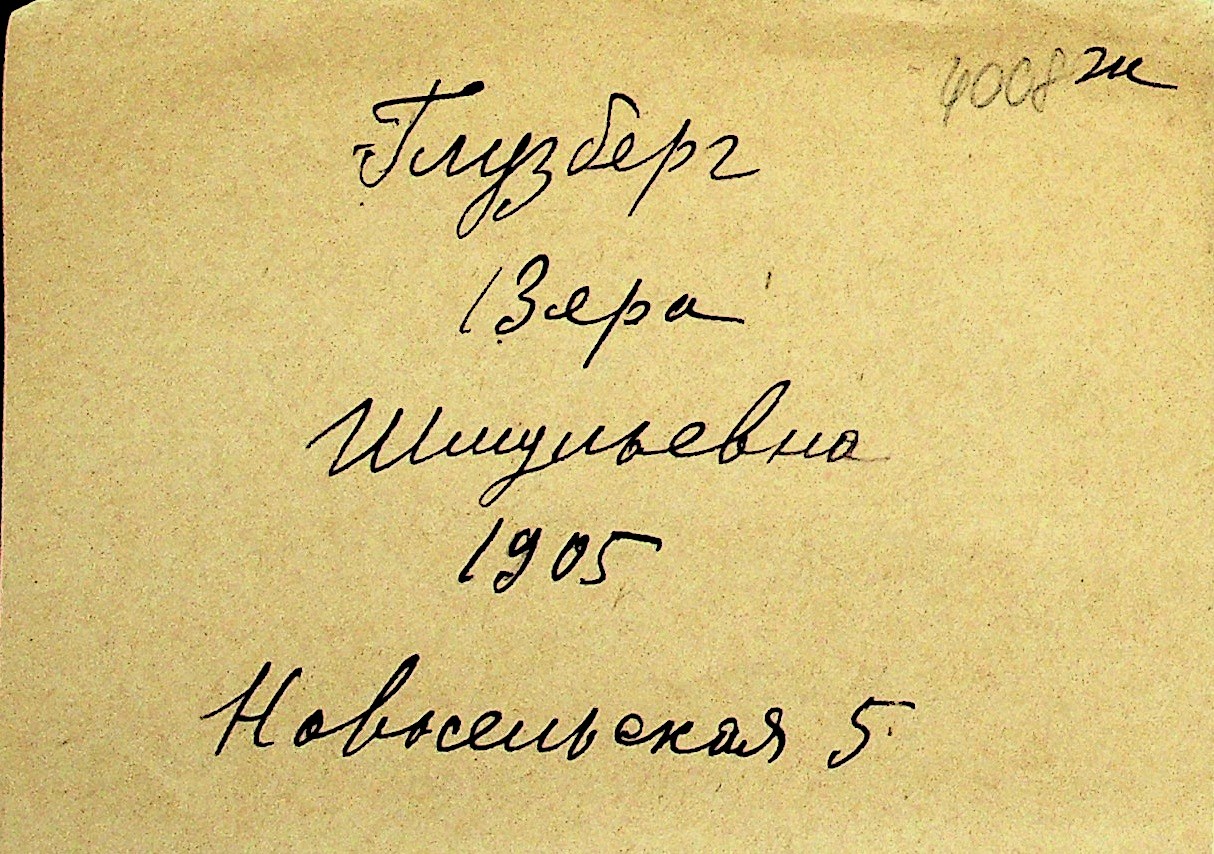 4008 ж
Глузберг
Вера
Шмульевна
1905
Новосельская 5